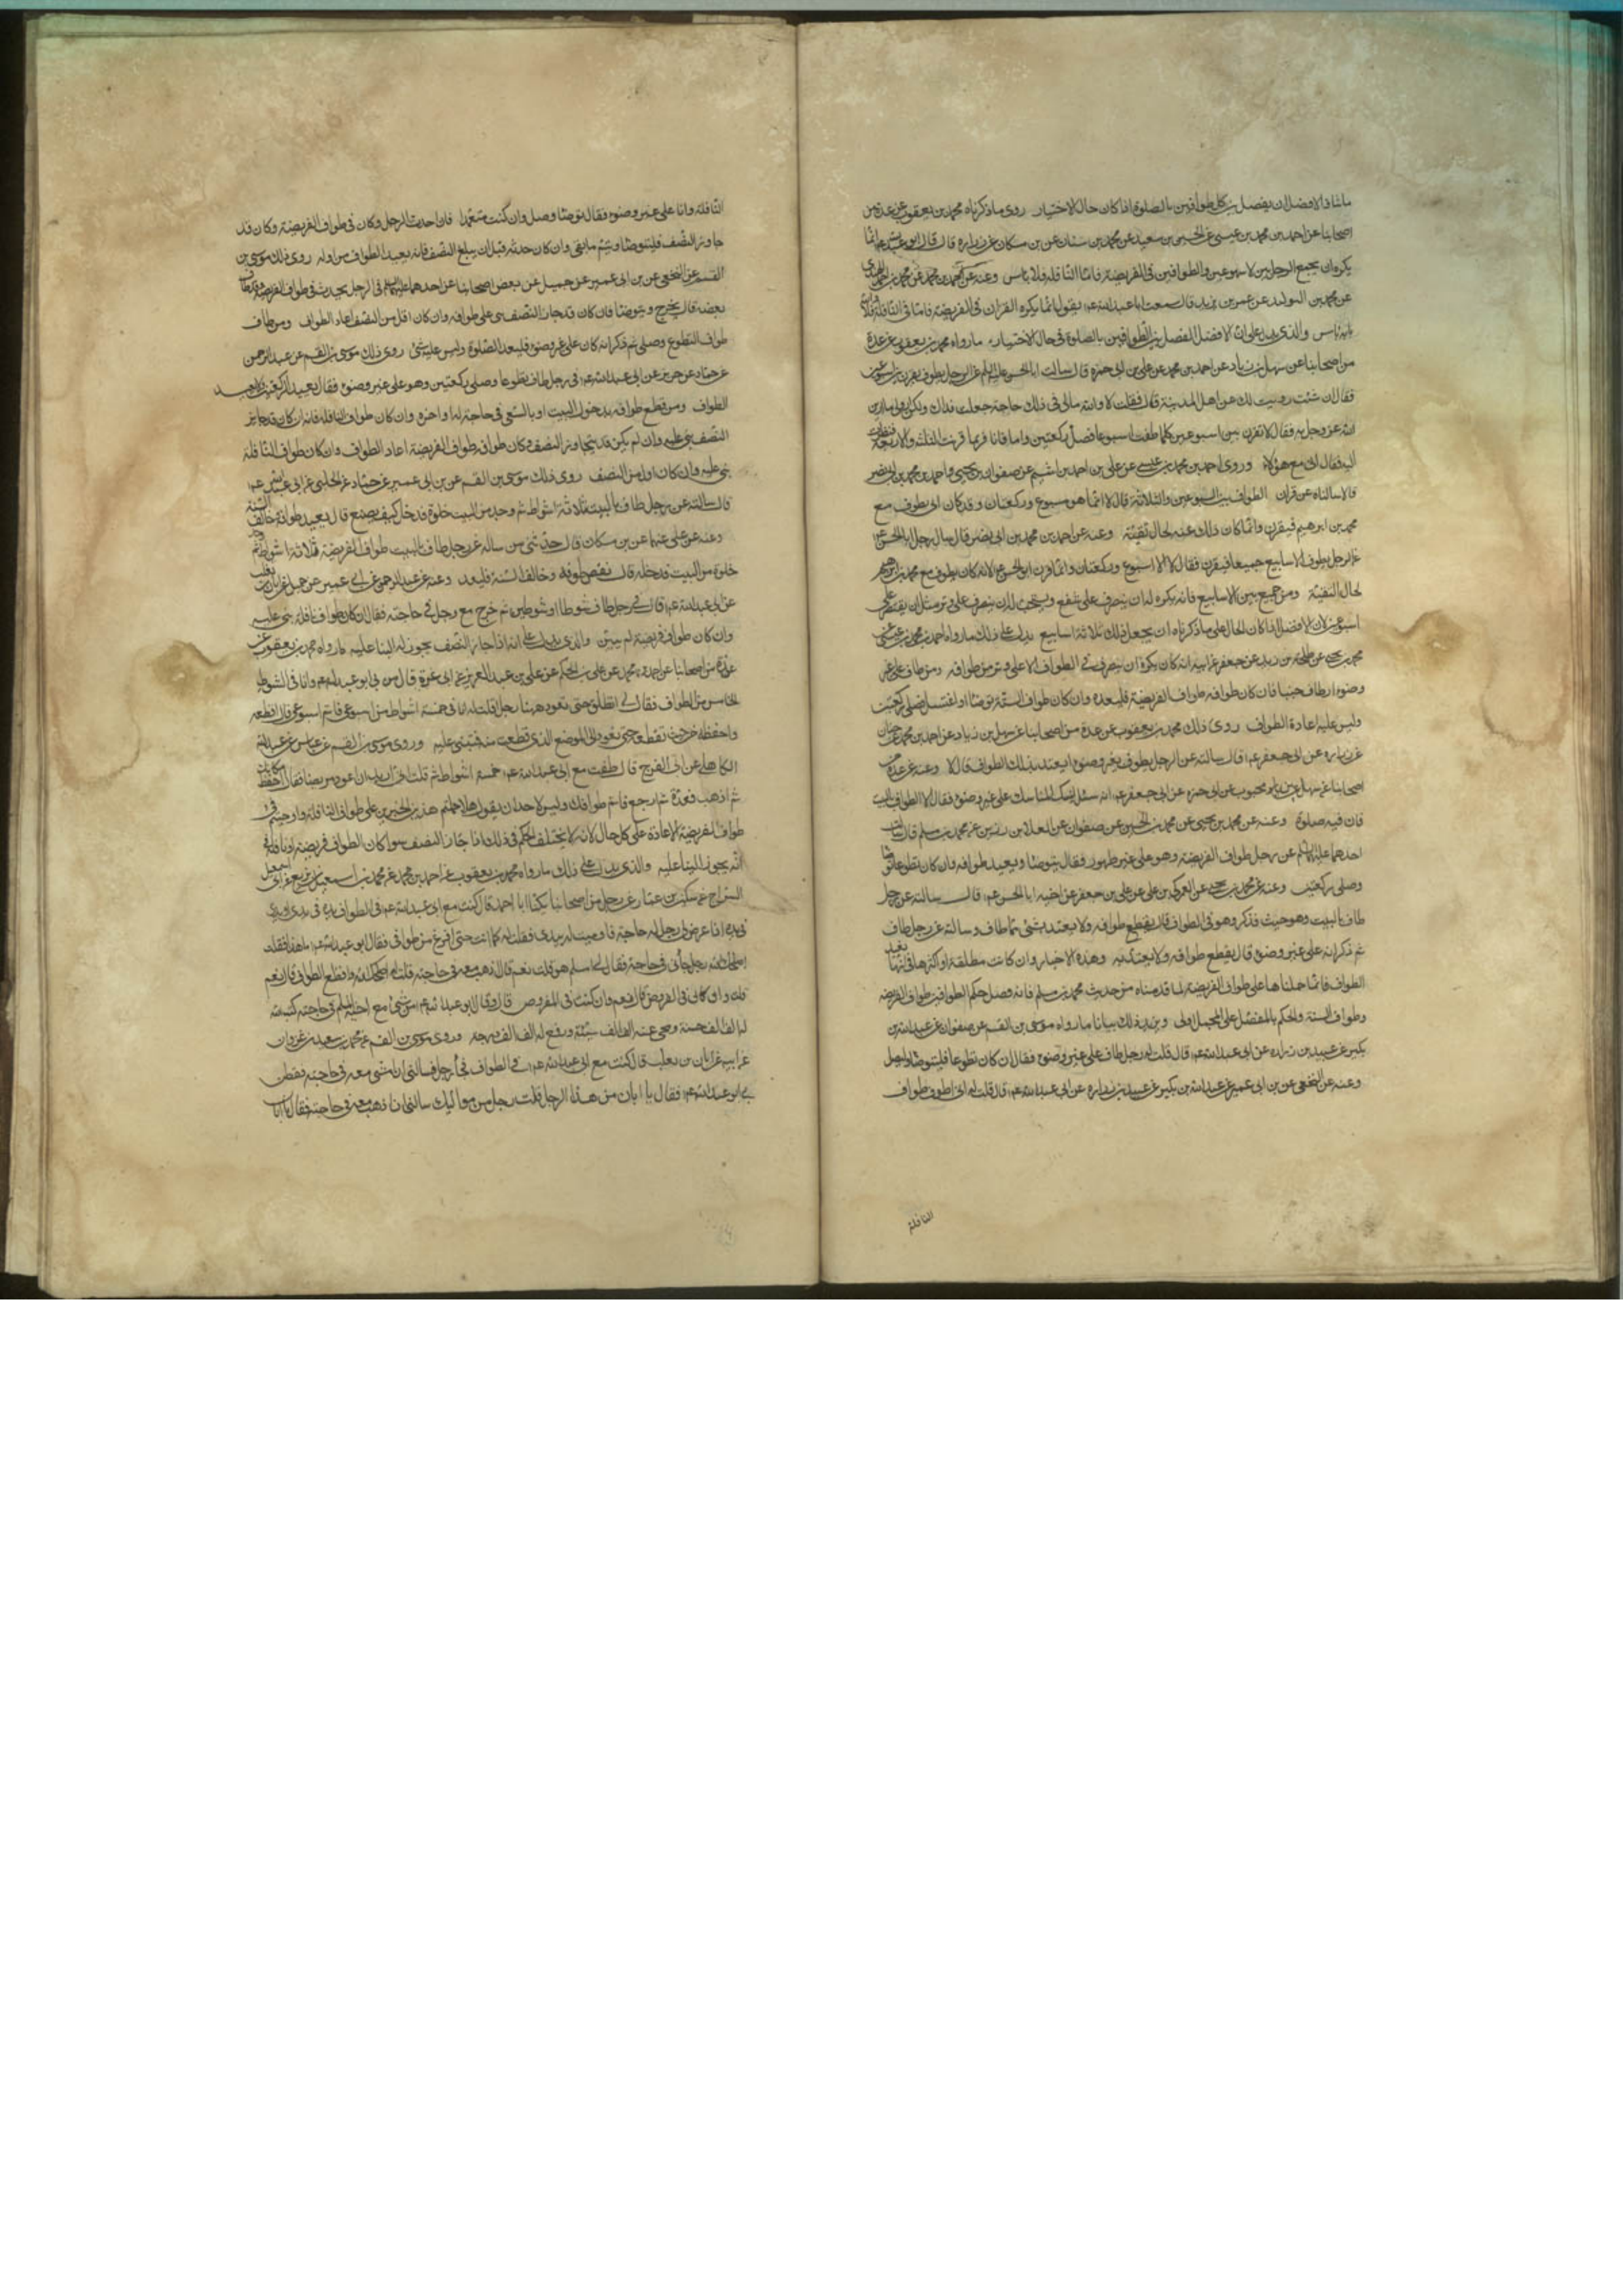 ماشاء الا ان الافضل ان يفصل بين كل طوافين بالصلوة اذا كان حال الاختيار روى ما ذكرناه محمد بن يعقوب عن عدة من
اصحابنا عن احمد بن محمد بن عيسى عن الحسين بن سعيد عن محمد بن سنان عن بن مسكان عن زراره قال قال ابو عبد الله انما
يكره ان يجمع الرجل بين الاسبوعين والطوافين فى الفريضة فاما النافلة فلا باس وعنه عن احمد بن محمد عن محمد بن احمد النهدى
عن محمد بن الوليد عن عمر بن يزيد قال سمعت ابا عبد الله عم يقول انما يكره القران فى الفريضة فاما فى النافلة فلا والله
ما به باس والذى يدل على ان الافضل الفصل بين الطوافين بالصلوة فى حال الاختيار ما رواه محمد بن يعقوب عن عدة
من اصحابنا عن سهل بن زياد عن احمد بن محمد عن على بن ابى حمزه قال سالت ابا الحسن عليه السلم عن الرجل يطوف يقرن بين اسبوعين
فقال ان شئت رويت لك عن اهل المدينة قال فقلت لا والله مالى فى ذلك حاجة جعلت فداك ولكن ارو لى ما ادين
الله عز وجل به فقال لا تقرن بين اسبوعين كلما طفت اسبوعا فصل ركعتين واما انا فربما قرنت الثلثة والاربعة فنظرت
اليه فقال انى مع هؤلاء وروى احمد بن محمد بن عيسى عن على بن احمد بن اشيم عن صفوان بن يحيى واحمد بن محمد بن ابى نصر
قالا سالناه عن قران الطواف بين السبوعين والثلاثة قال لا انما هو سبوع وركعتان وقد كان ابى يطوف مع
محمد بن ابرهيم فيقرن وانما كان ذلك عنه لحال تقيّة وعنه عن احمد بن محمد بن ابى نصر قال سال رجل ابا الحسن عم
عن الرجل يطوف الاسابيع جميعا فيقرن فقال لا الا اسبوع وركعتان وانما قرن ابو الحسن عم لانه كان يطوف مع محمد بن ابرهيم
لحال التقيّة ومن جمع بين الاسابيع فانه يكره له ان ينصرف على شفع ويستحب له ان ينصرف على وتر مثل ان يقتصر على
محمد بن يحيى عن طلحة بن زيد عن جعفر عن ابيه انه كان يكره ان ينصرف فى الطواف الا على وتر من طوافه ومن طاف على غير
وضوء او طاف جنبا فان كان طوافه طواف الفريضة فليعده وان كان طواف السنّة توضا او اغتسل فصلى ركعتين
وليس عليه اعادة الطواف روى ذلك محمد بن يعقوب عن عدة من اصحابنا عن سهل بن زياد عن احمد بن محمد عن حنان
عن ابى جعفر عم قال سالته عن الرجل يطوف بغير وضوء ايعتد بذلك الطواف قال لا وعنه عن عدة من
اصحابنا عن سهل عن ابن محبوب عن ابى حمزه عن ابى جعفر عم انه سئل اينسك المناسك على غير وضوء فقال لا الطواف بالبيت
فان فيه صلوة وعنه عن محمد بن يحيى عن محمد بن الحسين عن صفوان عن العلا بن رزين عن محمد بن مسلم قال سالت
احدهما عليهما السلم عن رجل طاف طواف الفريضة وهو على غير طهور فقال يتوضا ويعيد طوافه فان كان تطوعا توضا
وصلى ركعتين وعنه عن محمد بن يحيى عن العمركى بن على عن على بن جعفر عن اخيه ابا الحسن عم قال سالته عن رجل
طاف بالبيت وهو جنب فذكر وهو فى الطواف قال يقطع طوافه ولا يعتد بشئ مما طاف وسالته عن رجل طاف
ثم ذكر انه على غير وضوء قال يقطع طوافه ولا يعتد به وهذه الاخبار وان كانت مطلقة او اكثرها فى انها تعيد
الطواف فانما حملناها على طواف الفريضة لما قدمناه من حديث محمد بن مسلم فانه فصل حكم الطوافين طواف الفريضة
وطواف السنة والحكم بالمفصل على المجمل اولى ويزيد ذلك بيانا ما رواه موسى بن القسم عن صفوان عن عبد الله بن
بكير عن عبيد بن زراره عن ابى عبد الله عم قال قلت له رجل طاف على غير وضوء فقال ان كان تطوعا فليتوضا وليصل
وعنه عن النخعى عن بن ابى عمير عن عبد الله بن بكير عن عبيد بن زراره عن ابى عبد الله عم قال قلت له انى اطوف طواف
النافلة
النافلة وانا على غير وضوء فقال توضا وصل وان كنت متعمدا فان احدث الرجل وكان فى طواف الفريضة وكان قد
جاوز النصف فليتوضا ويتم ما بقى وان كان حدثه قبل ان يبلغ النصف فانه يعيد الطواف من اوله روى ذلك موسى بن
القسم عن النخعى عن بن ابى عمير عن جميل عن بعض اصحابنا عن احدهما عليهما السلم فى الرجل يحدث فى طواف الفريضة وقد طاف
بعضه قال يخرج ويتوضا فان كان قد جاز النصف بنى على طوافه وان كان اقل من النصف اعاد الطواف ومن طاف
طواف التطوع وصلى ثم ذكر انه كان على غير وضوء فليعد الصلوة وليس عليه شئ روى ذلك موسى بن القسم عن عبد الرحمن
عن حماد عن حريز عن ابى عبد الله عم فى رجل طاف تطوعا وصلى ركعتين وهو على غير وضوء فقال يعيد الركعتين ولا يعيد
الطواف ومن قطع طوافه بدخول البيت او بالسعى فى حاجة له او لاخره وان كان طواف النافلة فانه ان كان قد جاوز
النصف بنى عليه وان لم يكن قد تجاوز النصف وكان طوافه طواف الفريضة اعاد الطواف وان كان طواف النافلة
بنى عليه وان كان اقل من النصف روى ذلك موسى بن القسم عن بن ابى عمير عن حماد عن الحلبى عن ابى عبد الله عم
قال سالته عن رجل طاف بالبيت ثلاثة اشواط ثم وجد من البيت خلوة فدخل كيف يصنع قال يعيد طوافه خالف السنة
وعنه عن على عنهما عن بن مسكان قال حدثنى من ساله عن رجل طاف بالبيت طواف الفريضة ثلاثة اشواط ثم وجد
خلوة من البيت فدخله قال نقض طوافه وخالف السنة فليعد وعنه عن عبد الرحمن عن ابى عمير عن جميل عن ابان بن تغلب
عن ابى عبد الله عم قال فى رجل طاف شوطا او شوطين ثم خرج مع رجل فى حاجته فقال ان كان طواف نافلة بنى عليه
وان كان طواف فريضة لم يبن والذى يدل على انه اذا جاز النصف يجوز له البنا عليه ما رواه محمد بن يعقوب عن
عدة من اصحابنا عن احمد بن محمد عن على بن الحكم عن على بن عبد العزيز عن ابى عزة قال مر بى ابو عبد الله عم وانا فى الشوط
الخامس من الطواف فقال لى انطلق حتى نعود ههنا رجلا قلت له انا فى خمسة اشواط من اسبوعى فاتم اسبوعى قال اقطعه
واحفظه من حيث تقطع حتى تعود الى الموضع الذى قطعت منه فتبنى عليه وروى موسى بن القسم عن عباس عن عبد الله
الكاهلى عن ابى الفرج قال طفت مع ابى عبد الله عم خمسة اشواط ثم قلت انى اريد ان اعود مريضا فقال احفظ مكانك
ثم اذهب فعده ثم ارجع فاتم طوافك وليس لاحد ان يقول هلا حملتم هذين الخبرين على طواف النافلة واوجبتم فى
طواف الفريضة الاعادة على كل حال لانه لا يختلف الحكم فى ذلك اذا جاز النصف سوا كان الطواف فريضة او نافلة فى
انه يجوز البنا عليه والذى يدل على ذلك ما رواه محمد بن يعقوب عن احمد بن محمد عن محمد بن اسمعيل بن بزيع عن ابى اسمعيل
السراج عن سكين بن عمار عن رجل من اصحابنا يكنى ابا احمد قال كنت مع ابى عبد الله عم فى الطواف يده فى يدى او يدى
فى يده اذا عرض لى رجل له حاجة فاوميت له بيدى فقلت له كما انت حتى افرغ من طوافى فقال ابو عبد الله عم ما هذا فقلت
اصلحك الله رجل جاءنى فى حاجة فقال لى امسلم هو قلت نعم قال اذهب معه فى حاجته قلت له اصلحك الله واقطع الطواف قال نعم
قلت وان كان فى الفريضة قال نعم وان كنت فى المفروض قال وقال ابو عبد الله عم من مشى مع اخيه المسلم فى حاجته كتب الله
له الف الف حسنة ومحى عنه الف الف سيئة ورفع له الف الف درجة وروى موسى بن القسم عن محمد بن سعيد بن غزوان
عن ابيه عن ابان بن تغلب قال كنت مع ابى عبد الله عم فى الطواف فجاء رجل فسالنى ان امشى معه فى حاجته ففطن
بى ابو عبد الله عم فقال يا ابان من هذا الرجل قلت رجل من مواليك سالنى ان اذهب معه فى حاجته فقال يا ابان